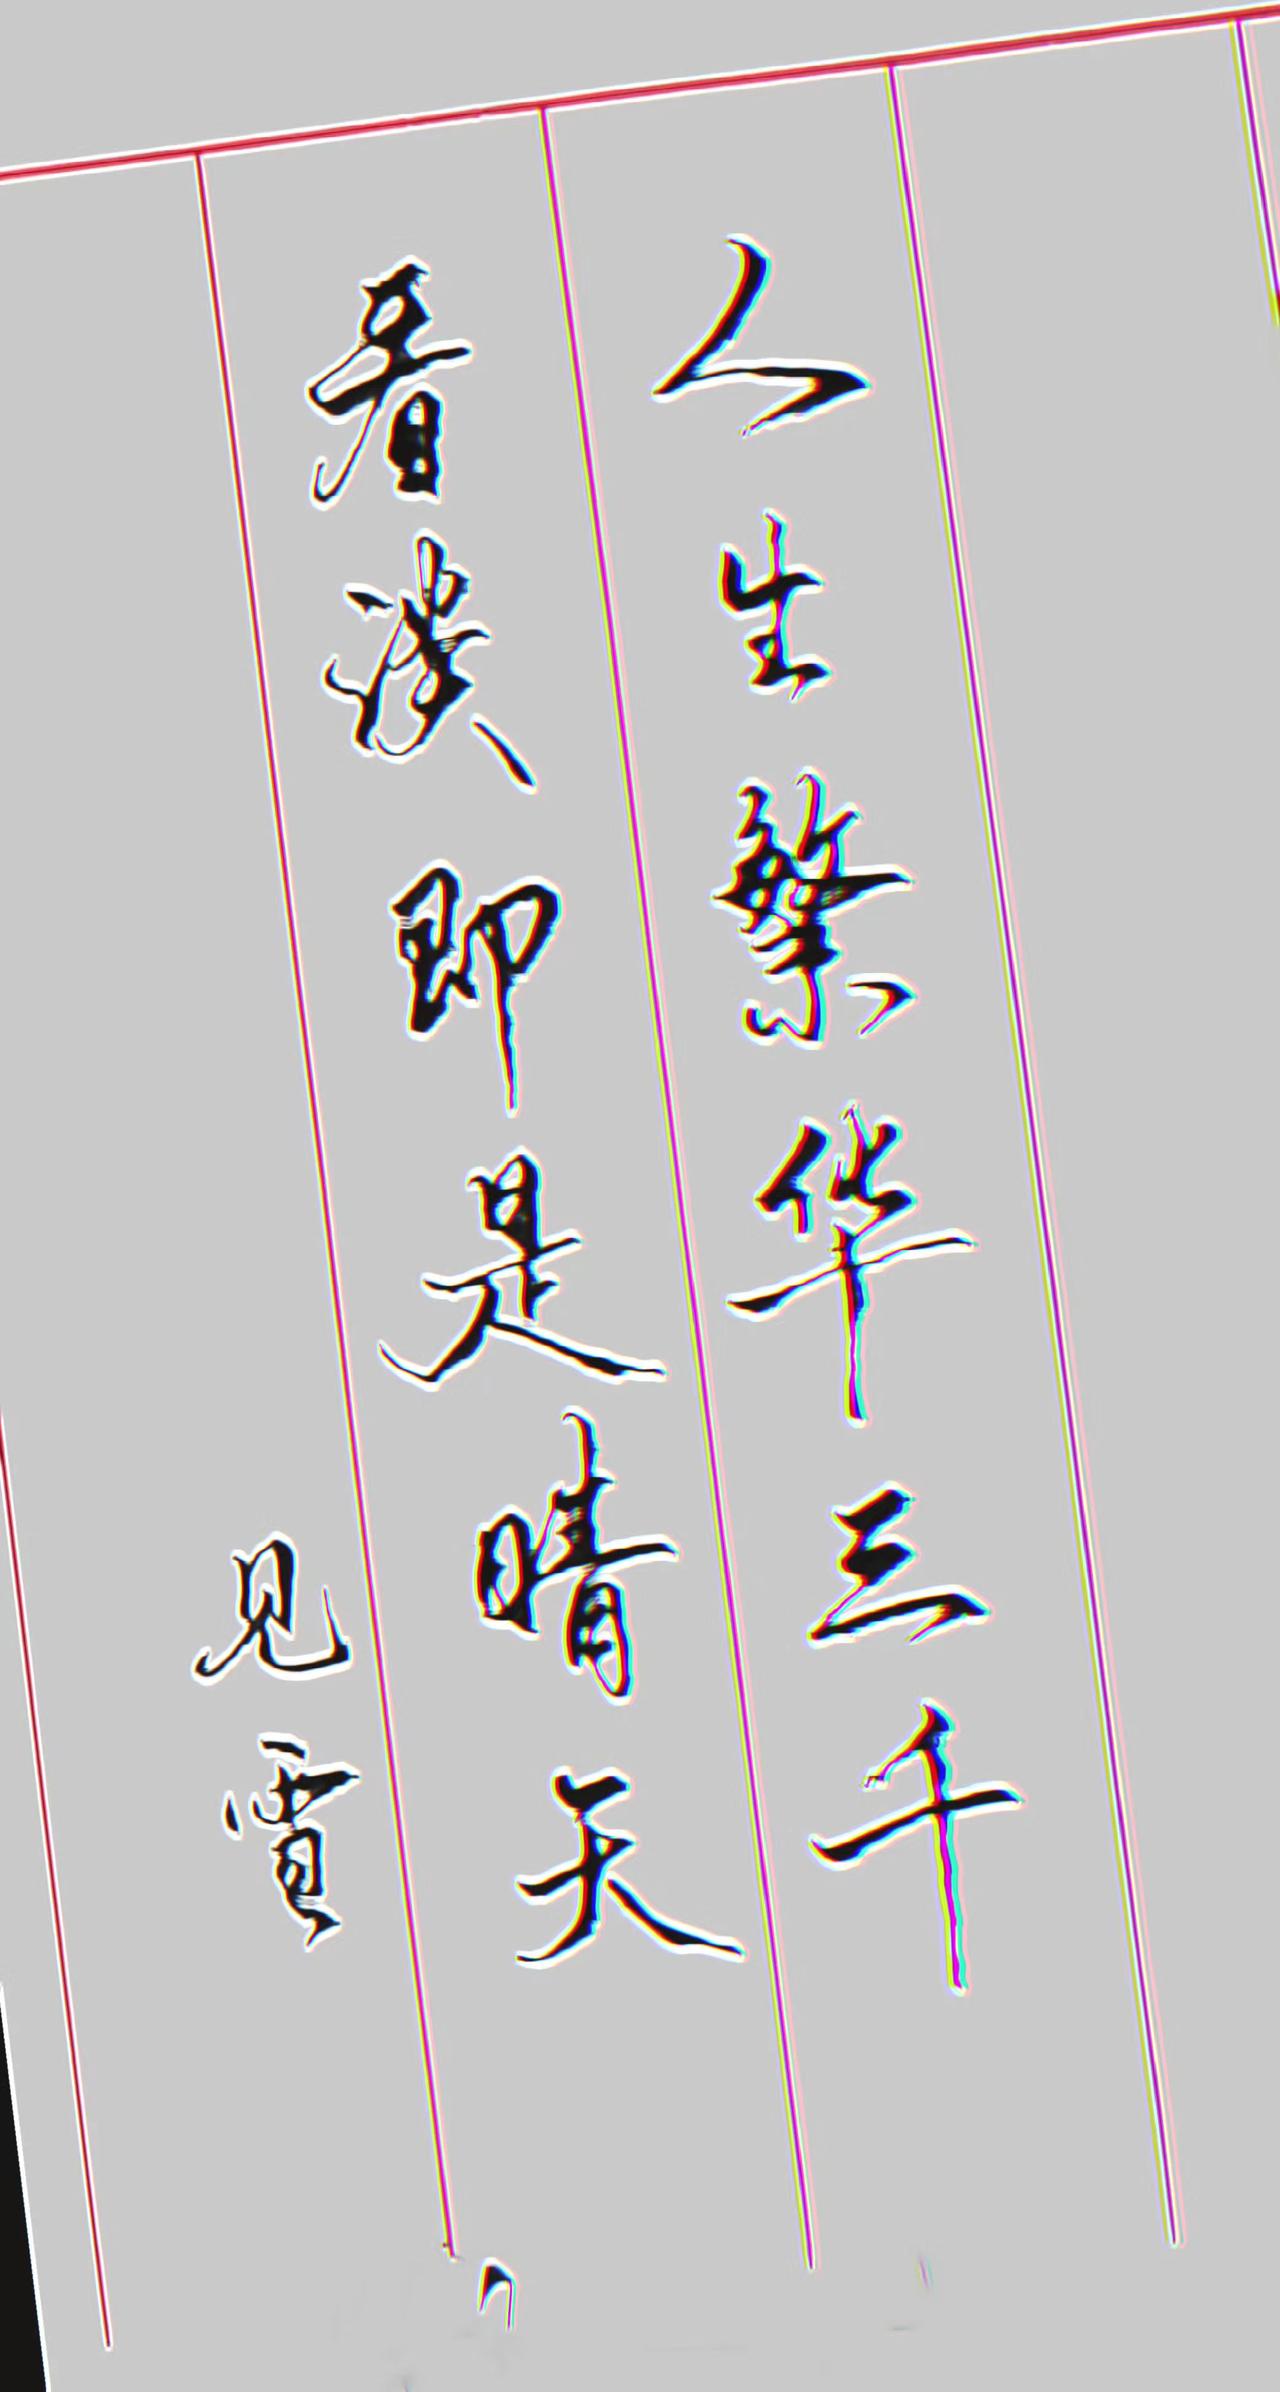 人生繁华三千
看淡即是晴天
见雪